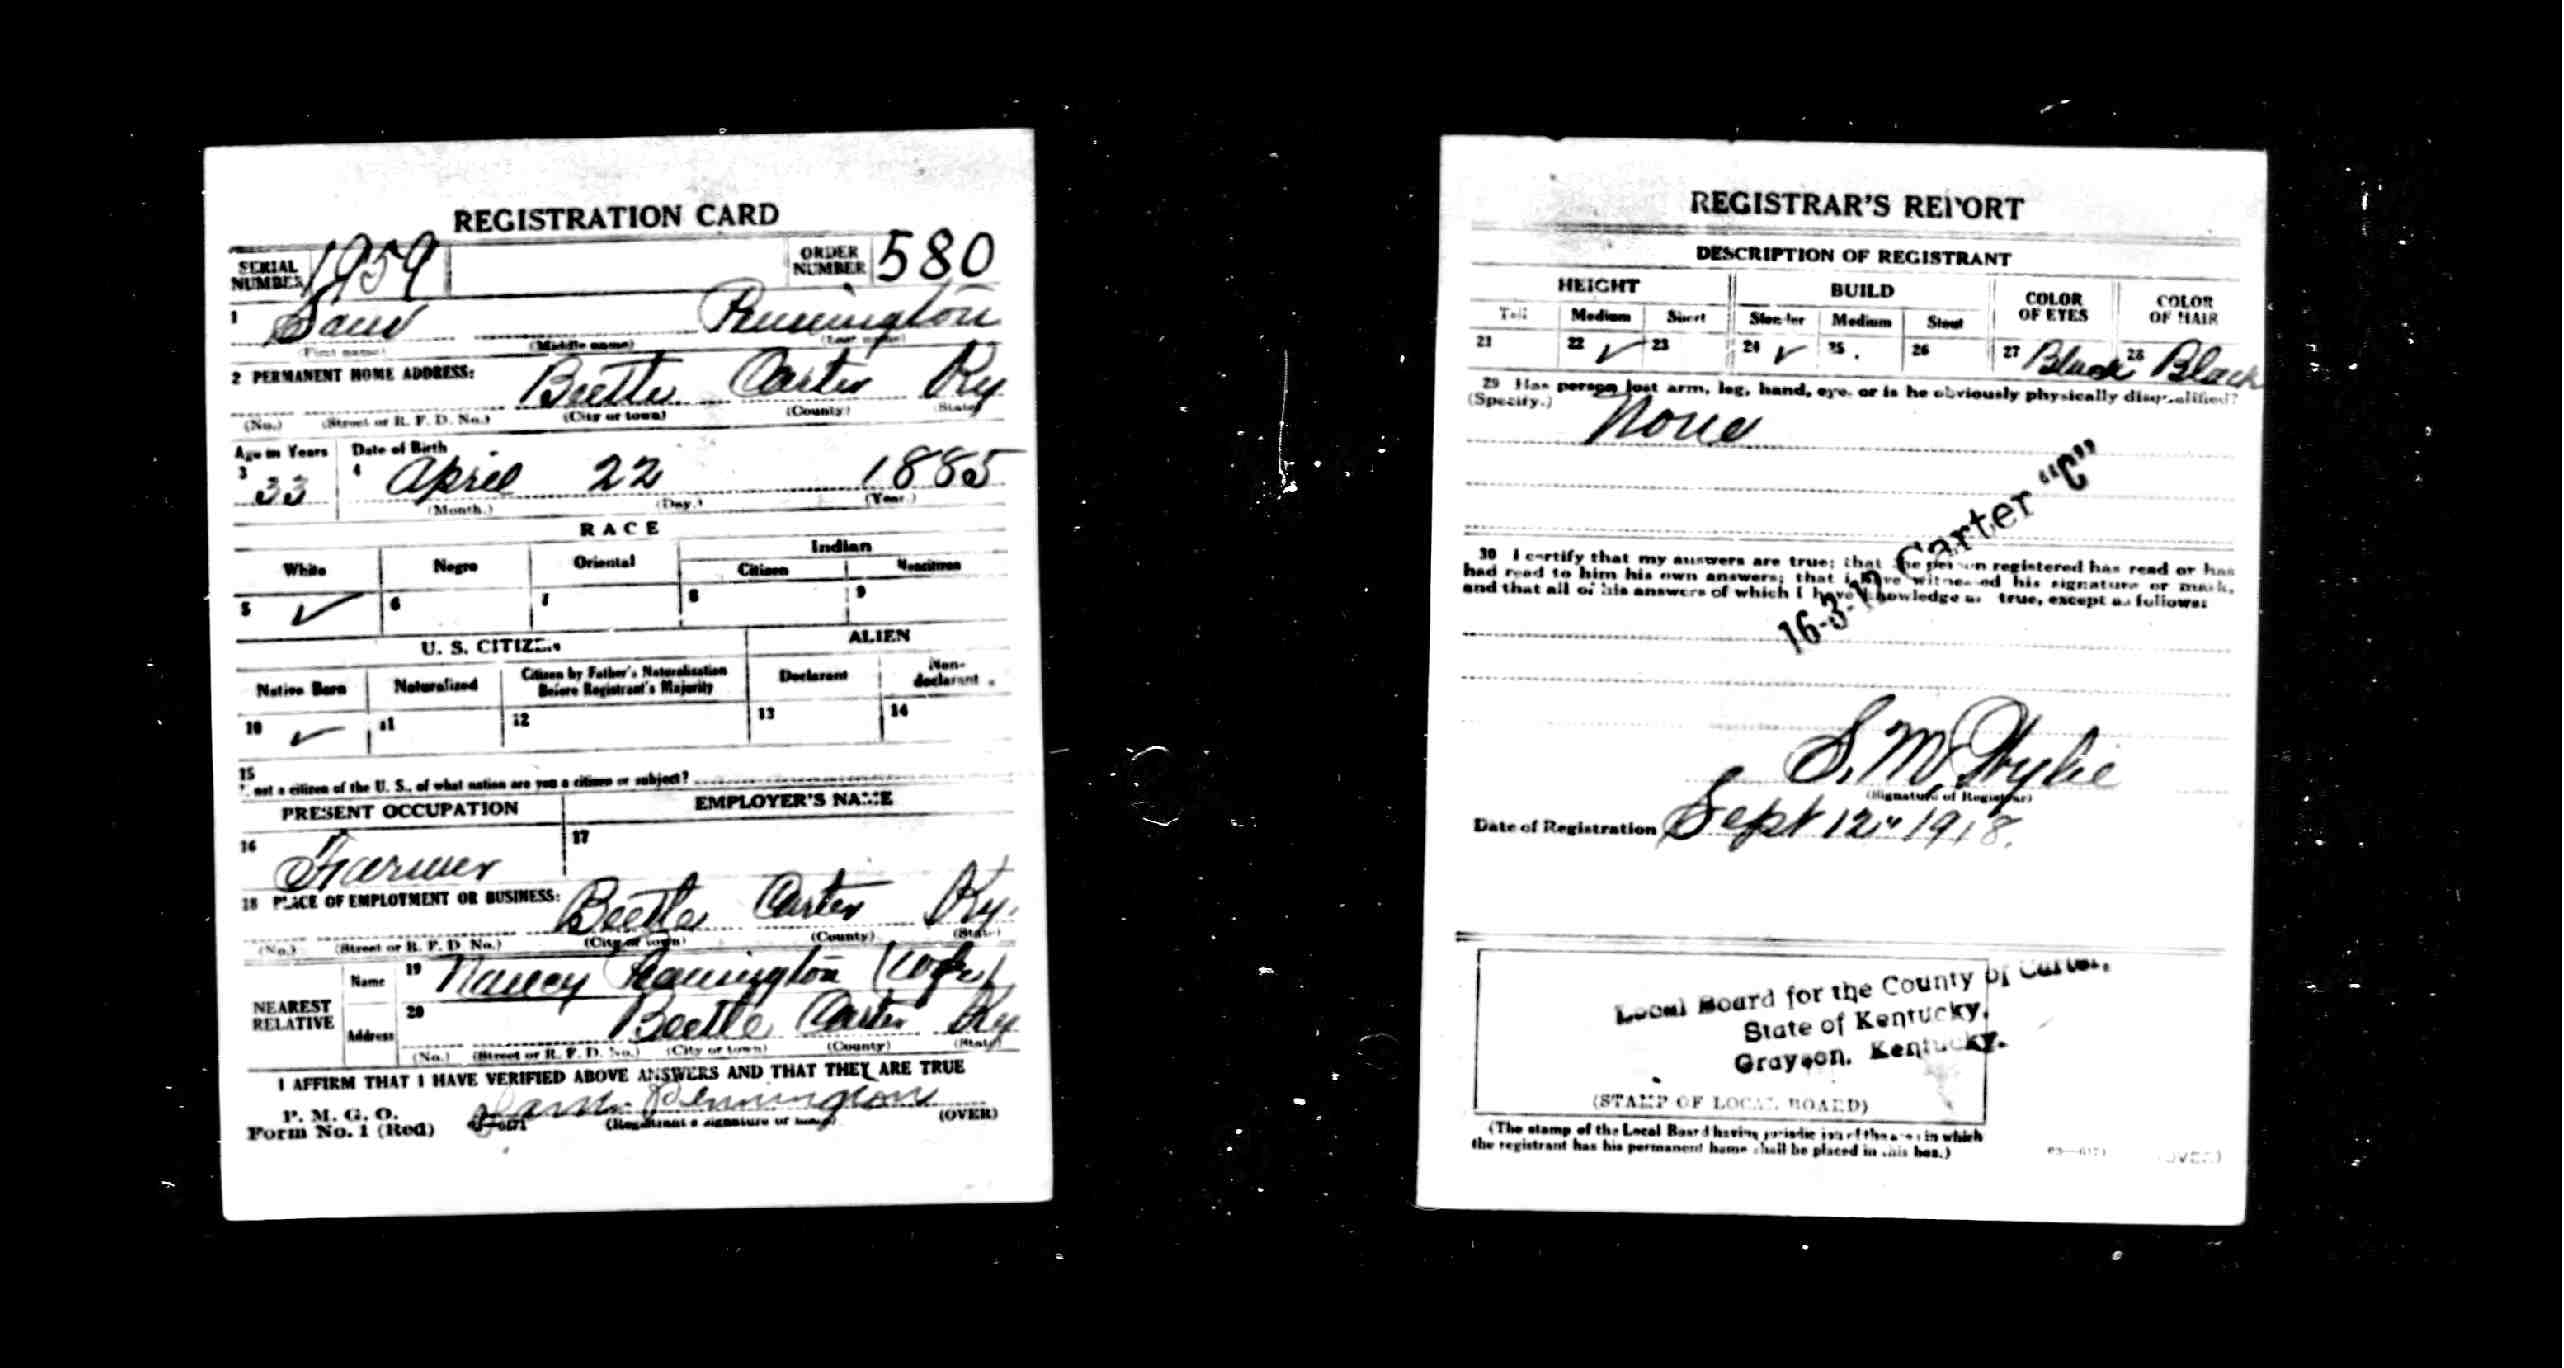 REGISTRATION CARD
SERIAL NUMBER 1959 ORDER NUMBER 580
1 Sam Pennington
(First name) (Middle name) (Last name)
2 PERMANENT HOME ADDRESS: Beetle Carter Ky
(No.) (Street or R. F. D. No.) (City or town) (County) (State)
Age in Years Date of Birth
3 33 4 April 22 1885
(Month.) (Day.) (Year.)
RACE
White Negro Oriental Indian
Citizen Noncitizen
5 ✓ 6 7 8 9
U. S. CITIZEN ALIEN
Native Born Naturalized Citizen by Father's Naturalization Before Registrant's Majority Declarant Non-declarant
10 ✓ 11 12 13 14
15
not a citizen of the U. S., of what nation are you a citizen or subject?
PRESENT OCCUPATION EMPLOYER'S NAME
16 Farmer 17
18 PLACE OF EMPLOYMENT OR BUSINESS: Beetle Carter Ky.
(No.) (Street or R. F. D. No.) (City or town) (County) (State)
NEAREST RELATIVE
Name 19 Nancy Pennington (wife)
Address 20 Beetle Carter Ky
(No.) (Street or R. F. D. No.) (City or town) (County) (State)
I AFFIRM THAT I HAVE VERIFIED ABOVE ANSWERS AND THAT THEY ARE TRUE
P. M. G. O.
Form No. 1 (Red) Sam Pennington
(Registrant's signature or mark) (OVER)
REGISTRAR'S REPORT
DESCRIPTION OF REGISTRANT
HEIGHT BUILD COLOR OF EYES COLOR OF HAIR
Tall Medium Short Slender Medium Stout
21 22 ✓ 23 24 ✓ 25 26 27 Black 28 Black
29 Has person lost arm, leg, hand, eye, or is he obviously physically disqualified?
(Specify.) None
16-3-12 Carter "C"
30 I certify that my answers are true; that the person registered has read or has
had read to him his own answers; that I have witnessed his signature or mark,
and that all of his answers of which I have knowledge are true, except as follows:
S. M. Wylie
(Signature of Registrar)
Date of Registration Sept 12" 1918.
Local Board for the County of Carter,
State of Kentucky,
Grayson, Kentucky.
(STAMP OF LOCAL BOARD)
(The stamp of the Local Board having jurisdiction of the area in which
the registrant has his permanent home shall be placed in this box.)
(OVER)